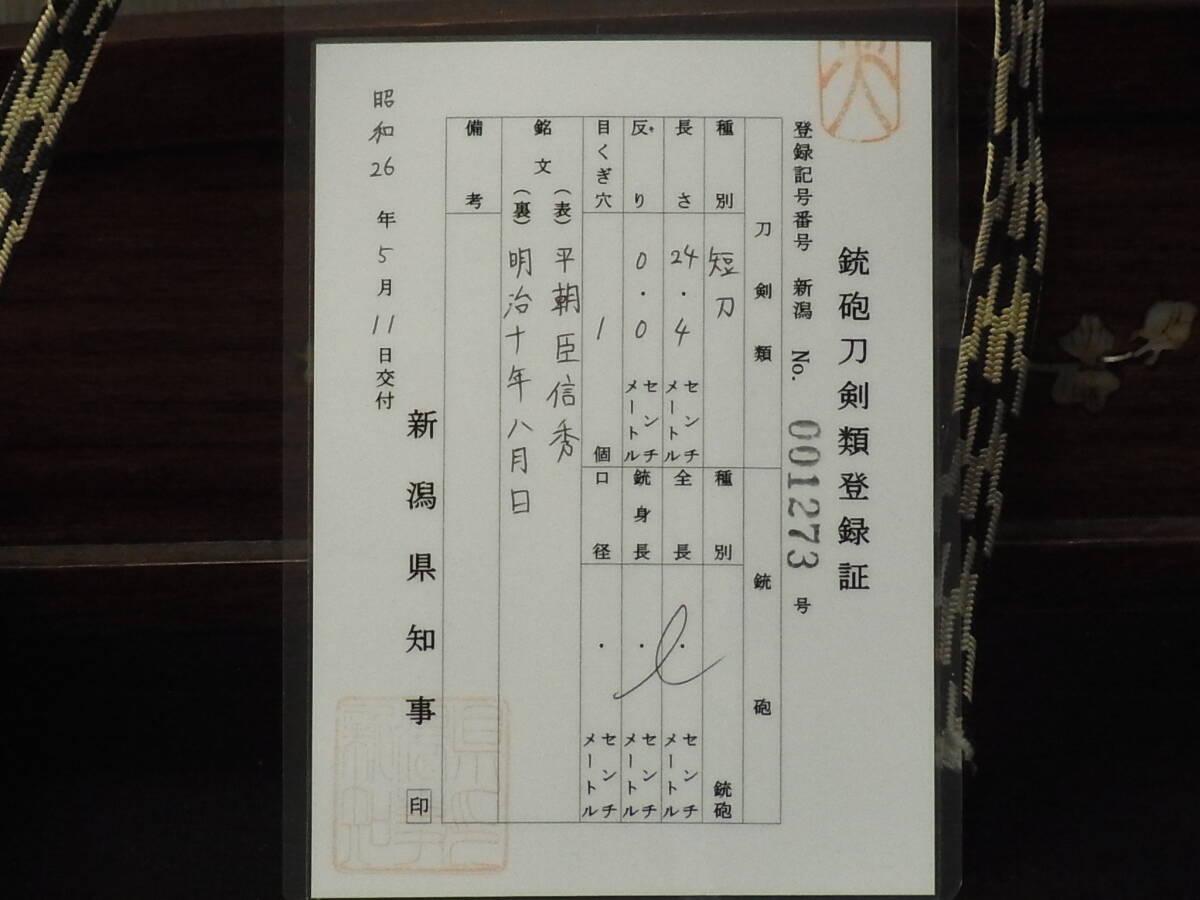 銃砲刀剣類登録証
登録記号番号 新潟 No. 001273 号
刀剣類
種別 短刀
長さ 24.4 センチメートル
反り 0.0 センチメートル
目くぎ穴 1 個
銘文 (表) 平朝臣信秀
(裏) 明治十年八月日
備考
銃砲
種別 銃砲
全長 . センチメートル
銃身長 . センチメートル
口径 . センチメートル
昭和26年5月11日交付
新潟県知事 印